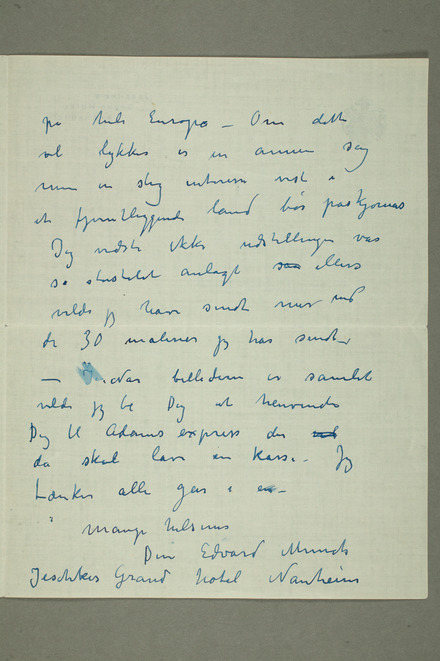 på hele Europa – Om dette
vil lykkes er en annen sag
men en slig interesse vist i
et fjerntliggende land bør paaskjønnes
Jeg vidste ikke udstillingen var
så storstilet anlagt saa ellers
vilde jeg have sendt mer end
de 30 malerier jeg har sendt –
– Når billedern er samlet
vilde jeg be Dig at henvende
Dig til Adams express der
da skal lave en Kasse. Jeg
tænker alle går i en –
Mange hilsener
Din Edvard Munch
Jeschkes Grand hotel Nauheim